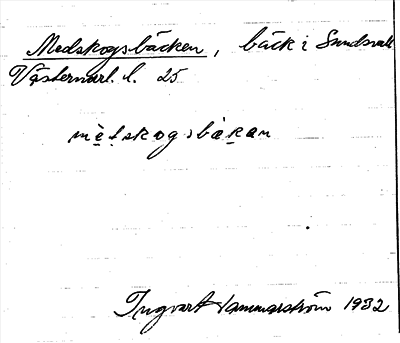 Medskogsbäcken, bäck i Sundsvall
Västernorrl. l. 25
mètskogsbäkan
Ingvart Hammarström 1932